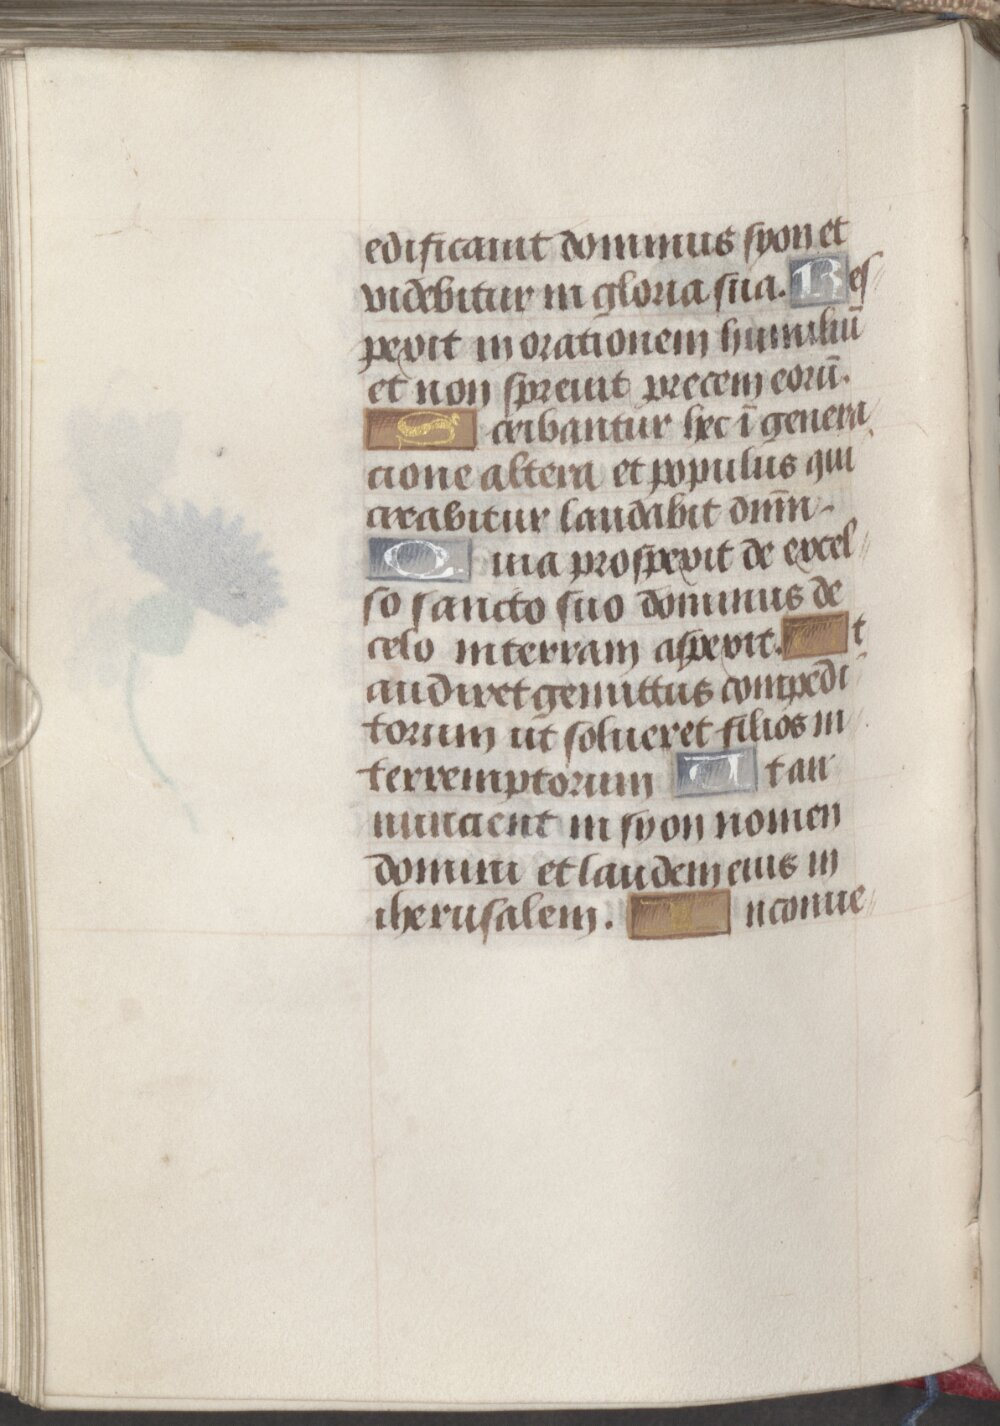 edificauit dominus syon et
videbitur in gloria sua. Res
pexit in orationem humiliū
et non spreuit precem eorū.
Scribantur hec ī genera
cione altera et populus qui
creabitur laudabit dnm̄.
Quia prospexit de excel
so sancto suo dominus de
celo in terram aspexit. Vt
audiret gemittus compedi
torum ut solueret filios in
terremptorum Vt an
nuncient in syon nomen
domini et laudem eius in
iherusalem. In conue